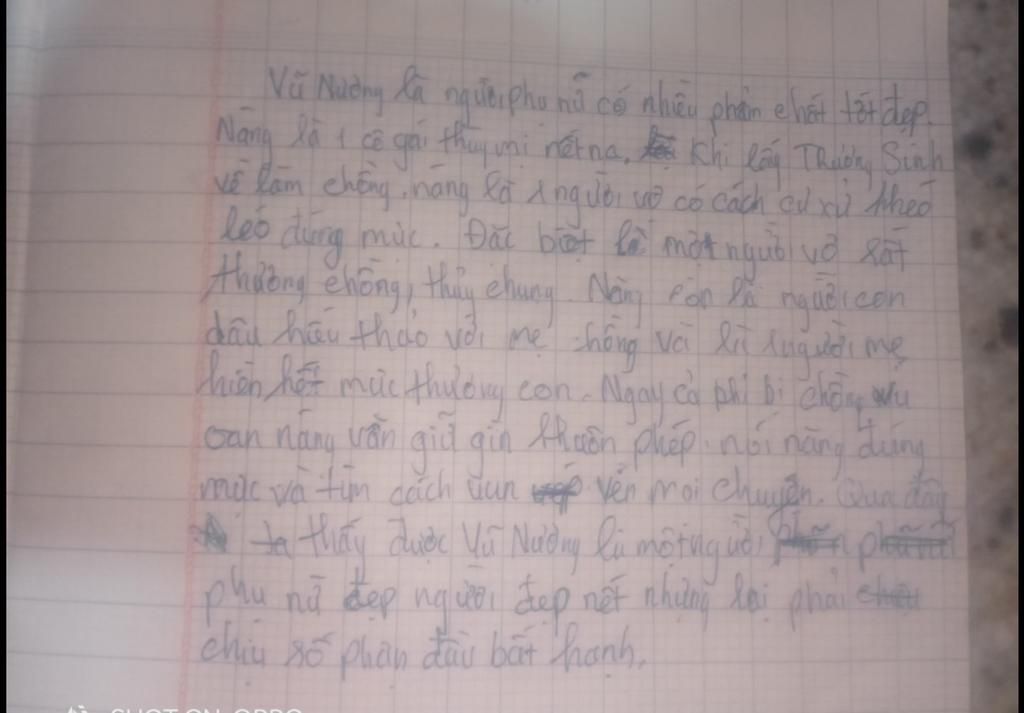 Vũ Nương là người phụ nữ có nhiều phẩm chất tốt đẹp.
Nàng là 1 cô gái thùy mị nết na. Khi lấy Trương Sinh
về làm chồng, nàng là 1 người vợ có cách cư xử khéo
léo đúng mực. Đặc biệt là một người vợ rất
thương chồng, thủy chung. Nàng còn là người con
dâu hiếu thảo với mẹ chồng và là 1 người mẹ
hiền, hết mực thương con. Ngay cả phi bị chồng vu
oan nàng vẫn giữ gìn khuôn phép. nói năng đúng
mực và tìm cách vun vén mọi chuyện. Qua đây
ta thấy được Vũ Nương là một người
phụ nữ đẹp người đẹp nết nhưng lại phải
chịu số phận đầy bất hạnh.
SHOT ON OPPO